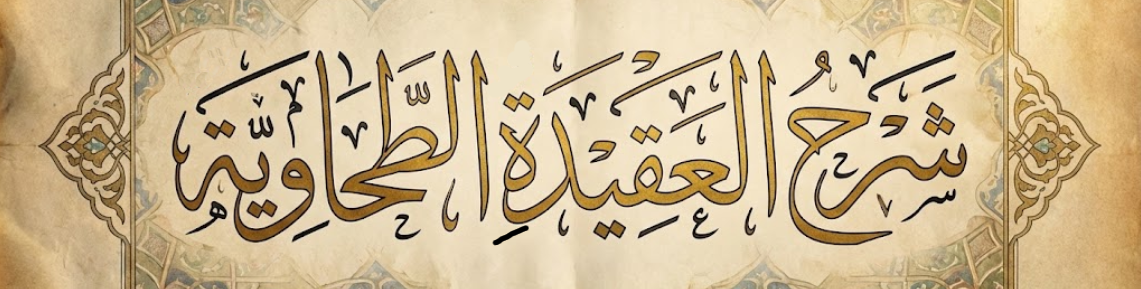 شَرْحُ الْعَقِيْدَةِ الطَّحَاوِيَّة